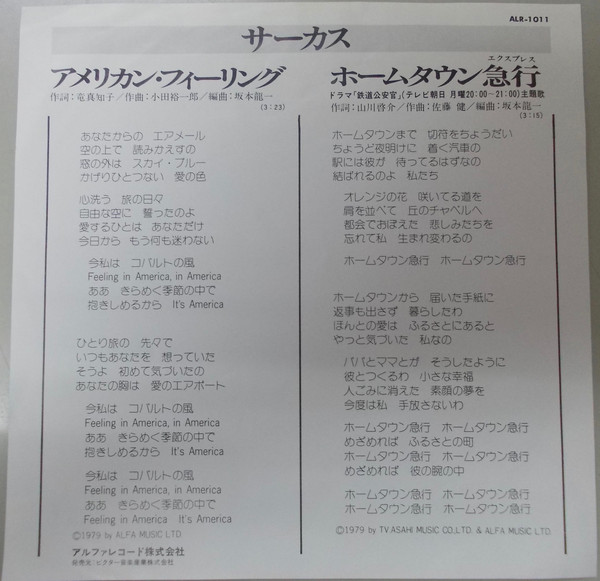 ALR-1011
サーカス
アメリカン・フィーリング
作詞：竜真知子／作曲：小田裕一郎／編曲：坂本龍一
(3:23)
あなたからの エアメール
空の上で 読みかえすの
窓の外は スカイ・ブルー
かげりひとつない 愛の色
心洗う 旅の日々
自由な空に 誓ったのよ
愛するひとは あなただけ
今日から もう何も迷わない
今私は コバルトの風
Feeling in America, in America
ああ きらめく季節の中で
抱きしめるから It's America
ひとり旅の 先々で
いつもあなたを 想っていた
そうよ 初めて気づいたの
あなたの胸は 愛のエアポート
今私は コバルトの風
Feeling in America, in America
ああ きらめく季節の中で
抱きしめるから It's America
今私は コバルトの風
Feeling in America, in America
ああ きらめく季節の中で
Feeling in America It's America
©1979 by ALFA MUSIC LTD.
アルファレコード株式会社
発売元/ビクター音楽産業株式会社
エクスプレス
ホームタウン急行
ドラマ「鉄道公安官」(テレビ朝日 月曜20:00〜21:00)主題歌
作詞：山川啓介／作曲：佐藤 健／編曲：坂本龍一
(3:15)
ホームタウンまで 切符をちょうだい
ちょうど夜明けに 着く汽車の
駅には彼が 待ってるはずなの
結ばれるのよ 私たち
オレンジの花 咲いてる道を
肩を並べて 丘のチャペルへ
都会でおぼえた 悲しみたちを
忘れて私 生まれ変わるの
ホームタウン急行 ホームタウン急行
ホームタウンから 届いた手紙に
返事も出さず 暮らしたわ
ほんとの愛は ふるさとにあると
やっと気づいた 私なの
パパとママとが そうしたように
彼とつくるわ 小さな幸福
人ごみに消えた 素顔の夢を
今度は私 手放さないわ
ホームタウン急行 ホームタウン急行
めざめれば ふるさとの町
ホームタウン急行 ホームタウン急行
めざめれば 彼の腕の中
ホームタウン急行 ホームタウン急行
ホームタウン急行 ホームタウン急行
©1979 by TV ASAHI MUSIC CO.,LTD. & ALFA MUSIC LTD.